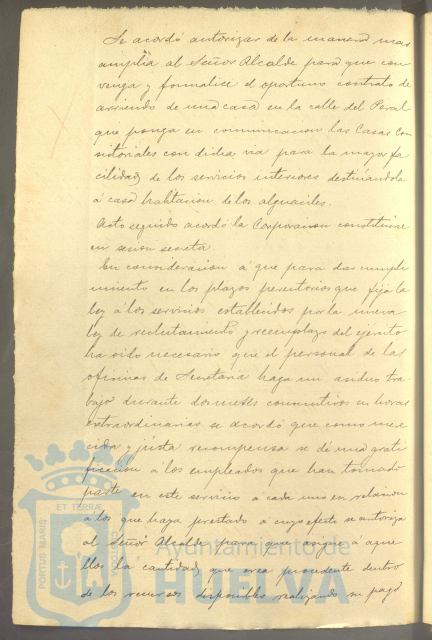 Se acordó autorizar de la manera mas
amplia al Señor Alcalde para que con
venga y formalice el oportuno contrato de
arriendo de una casa en la calle del Peral
que ponga en comunicacion las Casas Con
sistoriales con dicha via para la mayor fa
cilidad de los servicios interiores destinándola
á casa habitacion de los alguaciles.
Acto seguido acordó la Corporacion constituirse
en sesion secreta.
En consideracion á que para dar cumpli
miento en los plazos perentorios que fija la
ley á los servicios establecidos por la nueva
ley de reclutamiento y reemplazo del ejercito
ha sido necesario que el personal de las
oficinas de Secretaria haga un asiduo tra-
bajo durante dos meses consecutivos en horas
extraordinarias se acordó que como mere
cida y justa recompensa se dé una grati
ficacion á los empleados que han tomado
parte en este servicio á cada uno en relacion
á los que haya prestado á cuyo efecto se autoriza
al Señor Alcalde para que asigne á aque
llos la cantidad que crea procedente dentro
de los recursos disponibles realizando su pago
PORTUS MARIS ET TERRÆ CUSTODIA
Ayuntamiento de
HUELVA